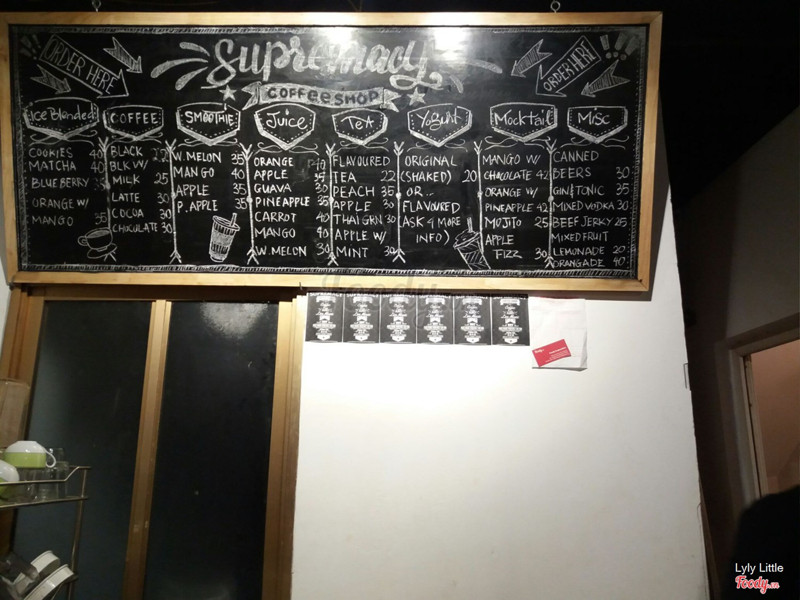 ORDER HERE
Supremacy
COFFEE SHOP
ORDER HERE
Ice Blended
COOKIES 40
MATCHA 40
BLUEBERRY 35
ORANGE W/
MANGO 35
COFFEE
BLACK
BLK W/
MILK 25
LATTE 30
COCOA 30
CHOCOLATE 30
SMOOTHIE
W. MELON 35
MANGO 40
APPLE 35
P. APPLE 35
Juice
ORANGE 40
APPLE 35
GUAVA 30
PINEAPPLE 35
CARROT 40
MANGO 40
W. MELON 30
TEA
FLAVOURED
TEA 22
PEACH 35
APPLE 30
THAI GRN 30
APPLE W/
MINT 30
Yogurt
ORIGINAL
(SHAKED) 20
OR...
FLAVOURED
(ASK 4 MORE
INFO)
Mocktail
MANGO W/
CHOCOLATE 42
ORANGE W/
PINEAPPLE 42
MOJITO 25
APPLE
FIZZ 30
Misc
CANNED
BEERS 30
GIN & TONIC 35
MIXED VODKA 30
BEEF JERKY 25
MIXED FRUIT
LEMONADE 20
ORANGADE 40
Foody
Lyly Little
Foody.vn